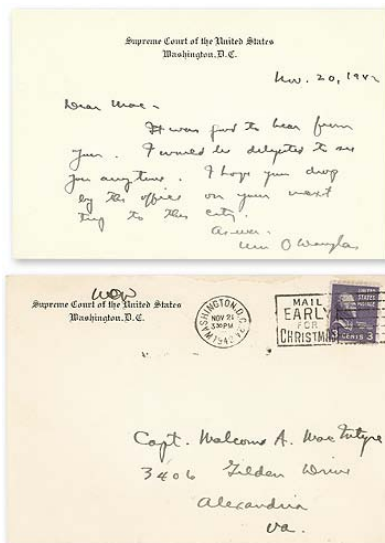 Supreme Court of the United States
Washington, D.C.
Nov. 20, 1942
Dear Mac -
It was good to hear from
you. I would be delighted to see
you any time. I hope you drop
by the office on your next
trip to this city.
As ever
Wm O Douglas
WOD
Supreme Court of the United States
Washington, D.C.
WASHINGTON, D.C.
NOV 21
3 30 PM
1942
MAIL
EARLY
FOR
CHRISTMAS
UNITED
STATES
POSTAGE
CENTS 3
Capt. Malcolm A. MacIntyre
3406 Gilden Drive
Alexandria
Va.